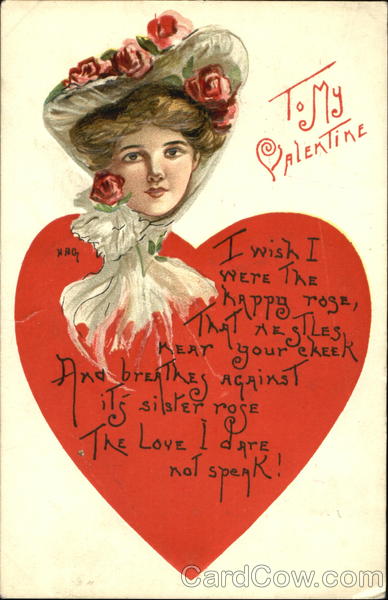 To My
Valentine
HBG
I wish I
were the
happy rose,
That nestles
near your cheek
And breathes against
it's sister rose
The Love I dare
not speak!
CardCow.com